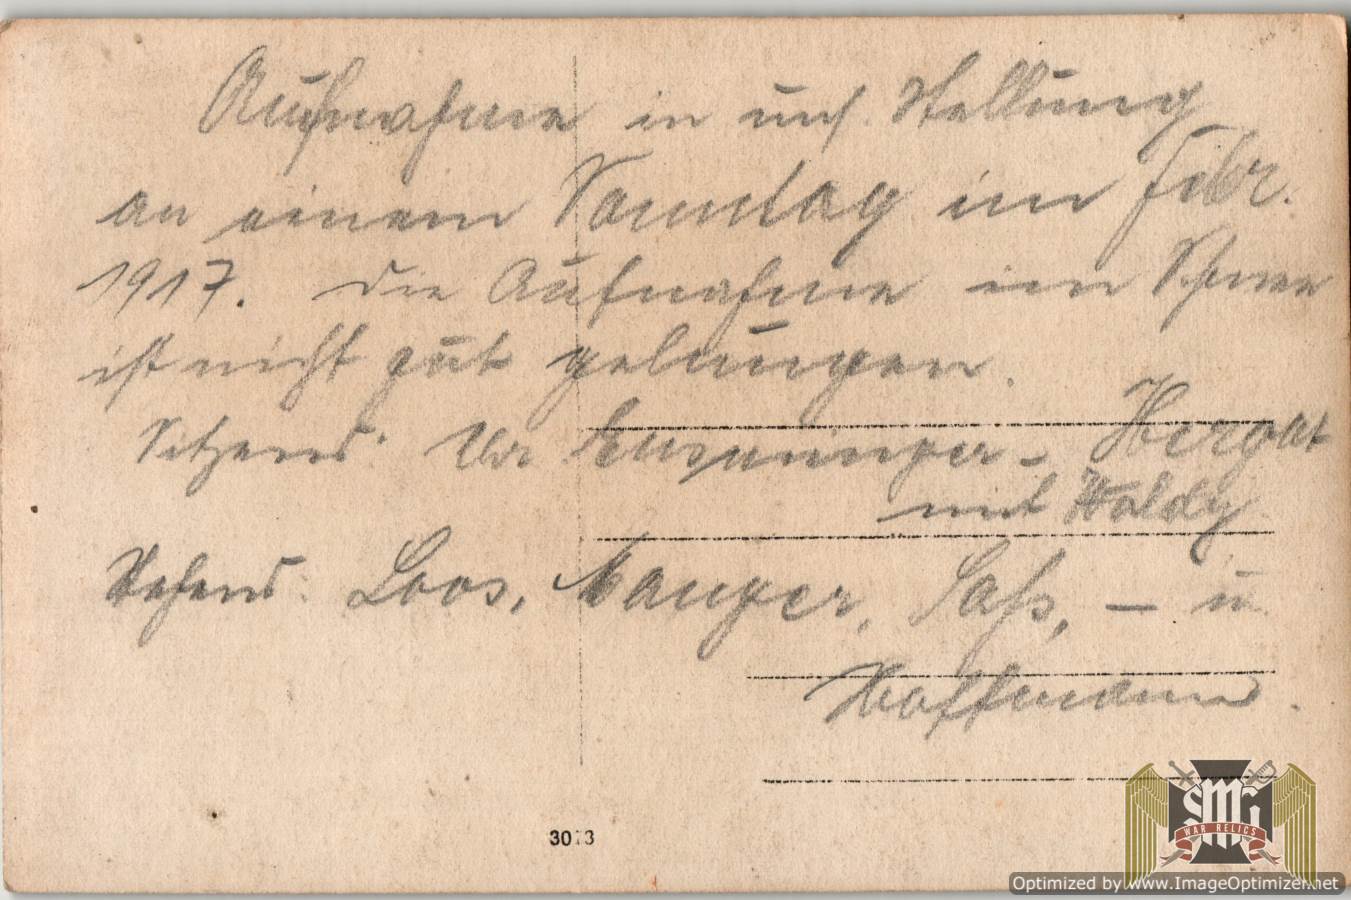 Aufnahme in uns. Stellung
an einem Sonntag im Febr.
1917. Die Aufnahme im Schnee
ist nicht gut gelungen.
Sitzend: Hergat
mit Waldy
Stehend. Loos, Sass, – u
Hoffmann.
SMG
WAR RELICS
Optimized by www.ImageOptimizer.net